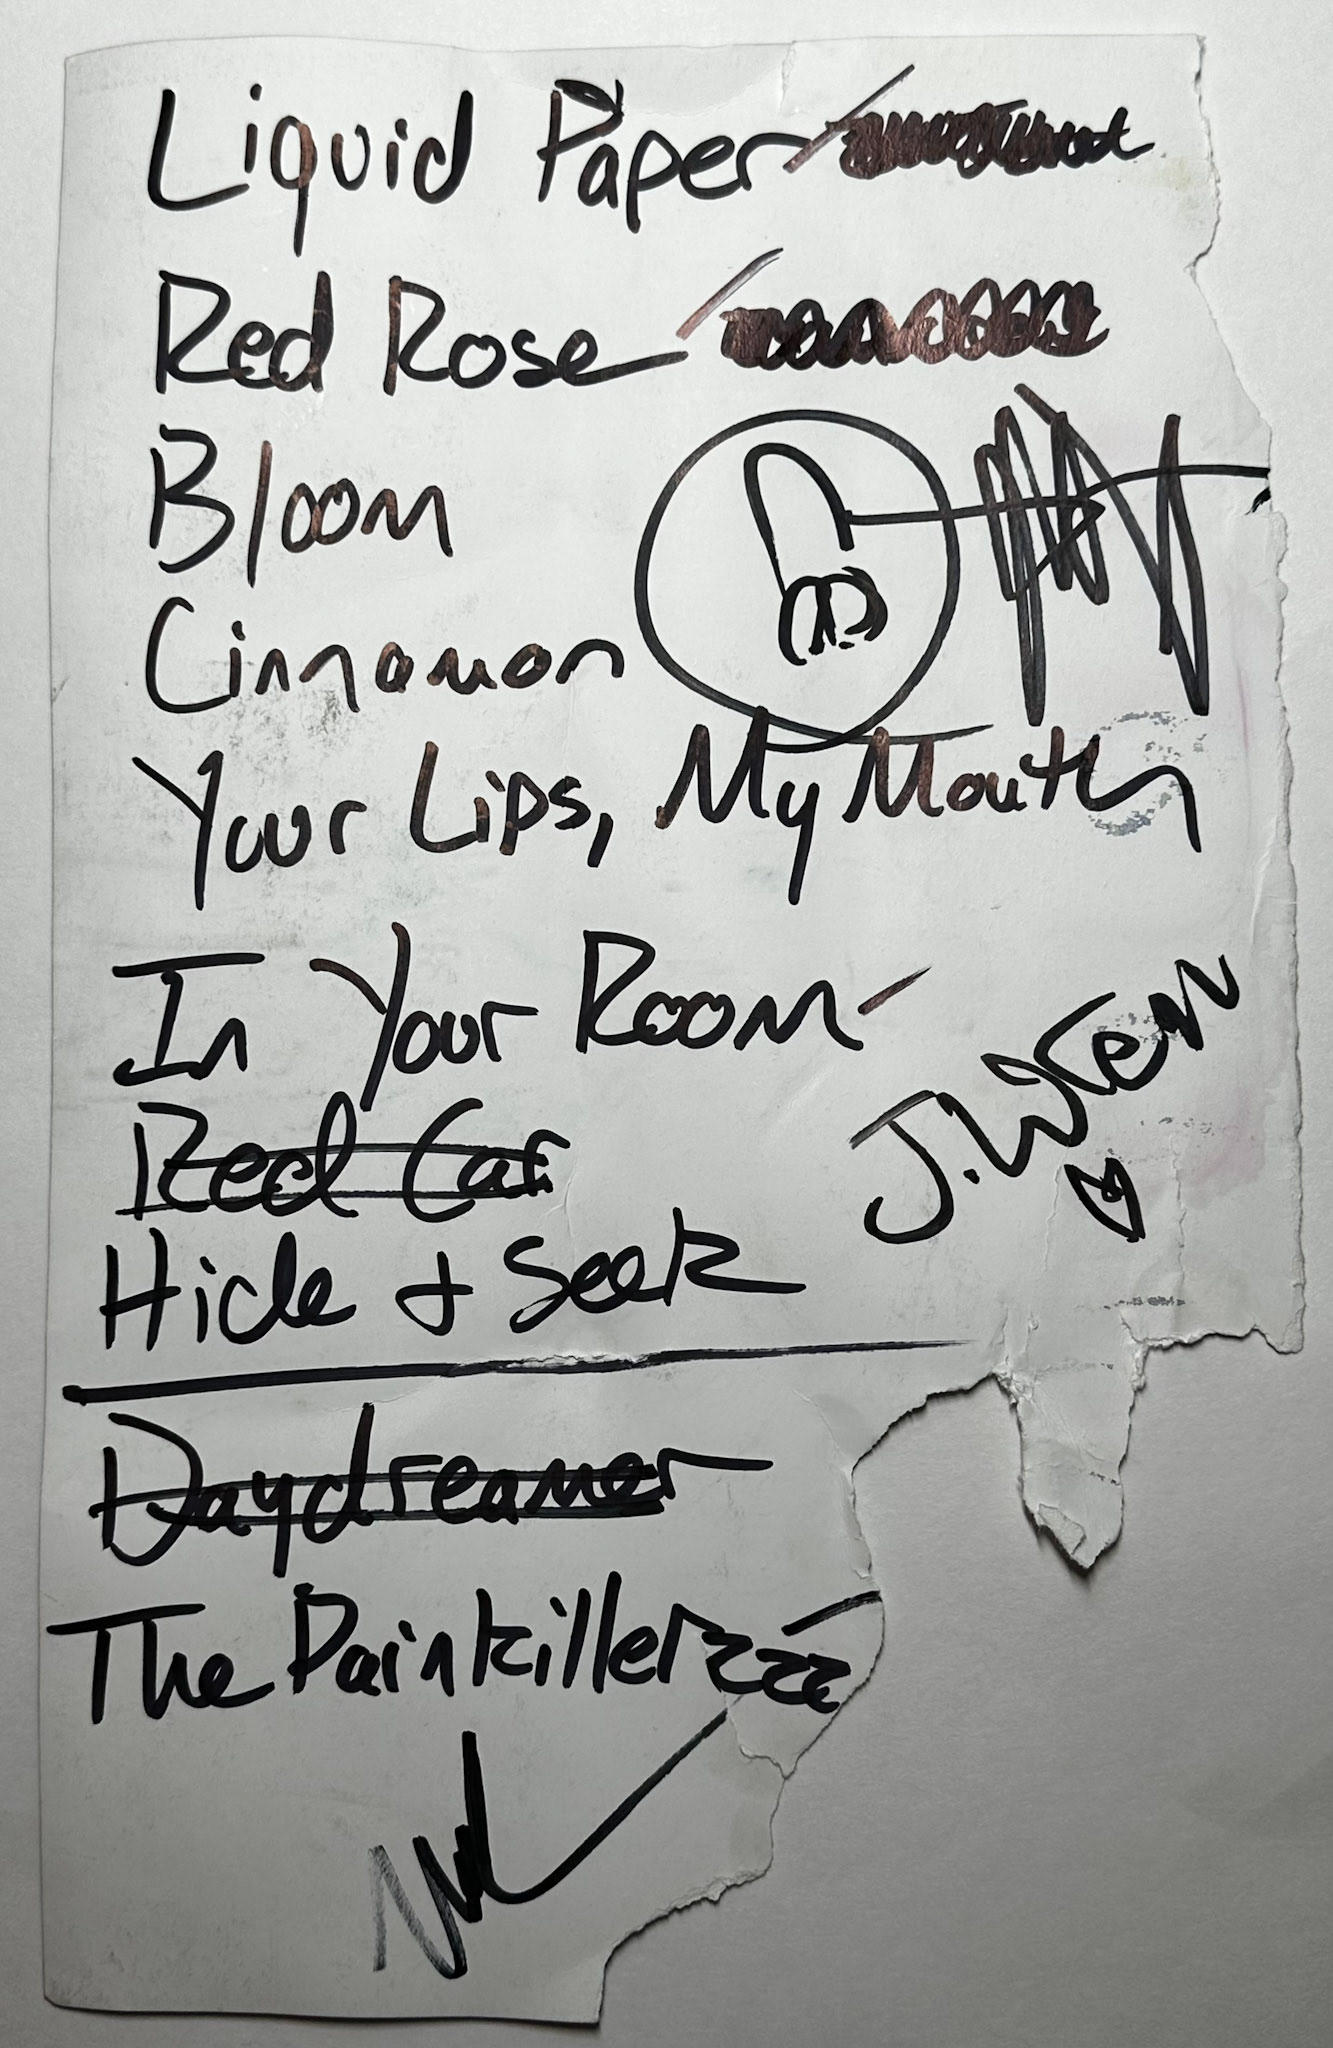 Liquid Paper /
Red Rose /
Bloom
Cinnamon
Your Lips, My Mouth
In Your Room -
J. Wren
Red Car
Hide + Seek
Daydreamer
The Painkillerzzzz